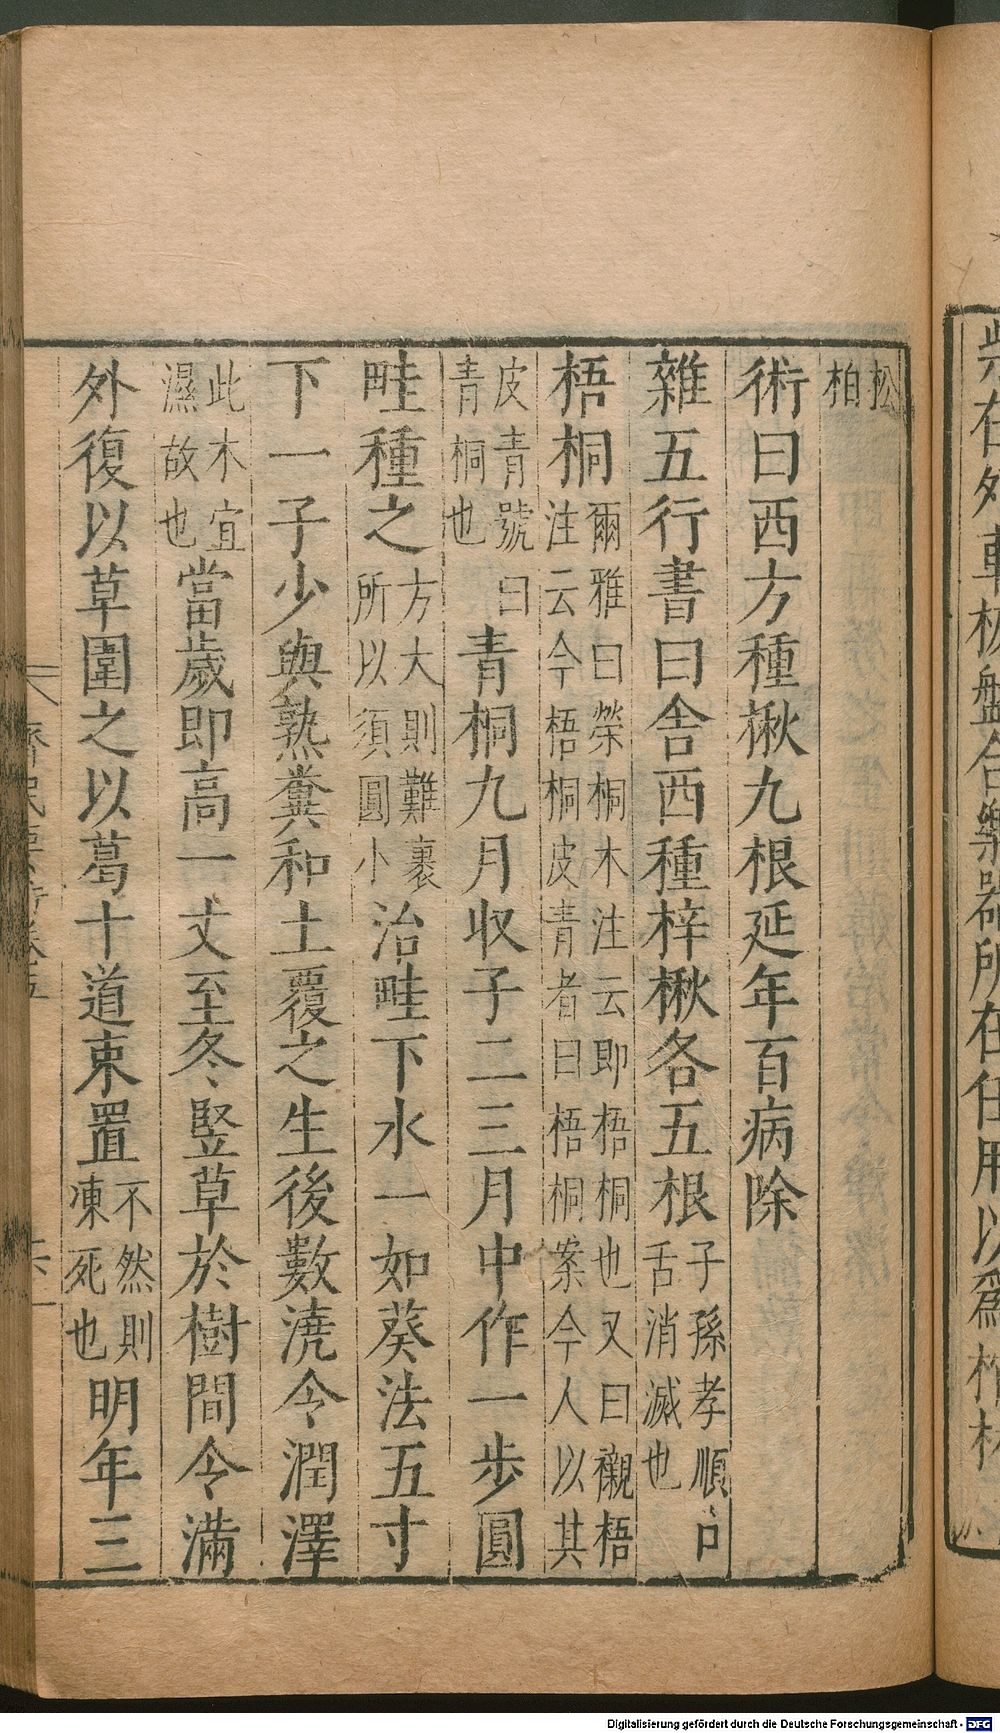 柴在外車板盤合樂器所在任用以爲棺材
松柏
術曰西方種楸九根延年百病除
雜五行書曰舍西種梓楸各五根子孫孝順口舌消滅也
梧桐爾雅曰榮桐木注云即梧桐也又曰櫬梧注云今梧桐皮青者曰梧桐案今人以其
皮青號曰青桐也青桐九月收子二三月中作一步圓
畦種之方大則難裹所以須圓小治畦下水一如葵法五寸
下一子少與熟糞和土覆之生後數澆令潤澤
此木宜濕故也當歲即高一丈至冬竪草於樹間令滿
外復以草圍之以葛十道束置不然則凍死也明年三
齊民要術卷五
Digitalisierung gefördert durch die Deutsche Forschungsgemeinschaft - DFG